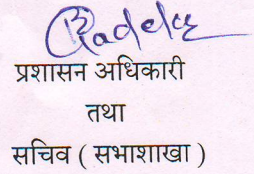 प्रशासन अधिकारी
तथा
सचिव ( सभाशाखा )